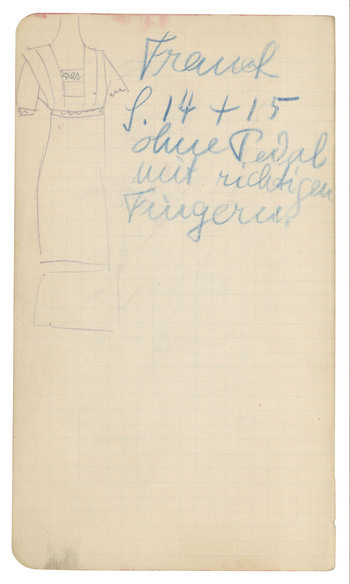 Franck
S. 14 + 15
ohne Pedal
mit richtigen
Fingern.